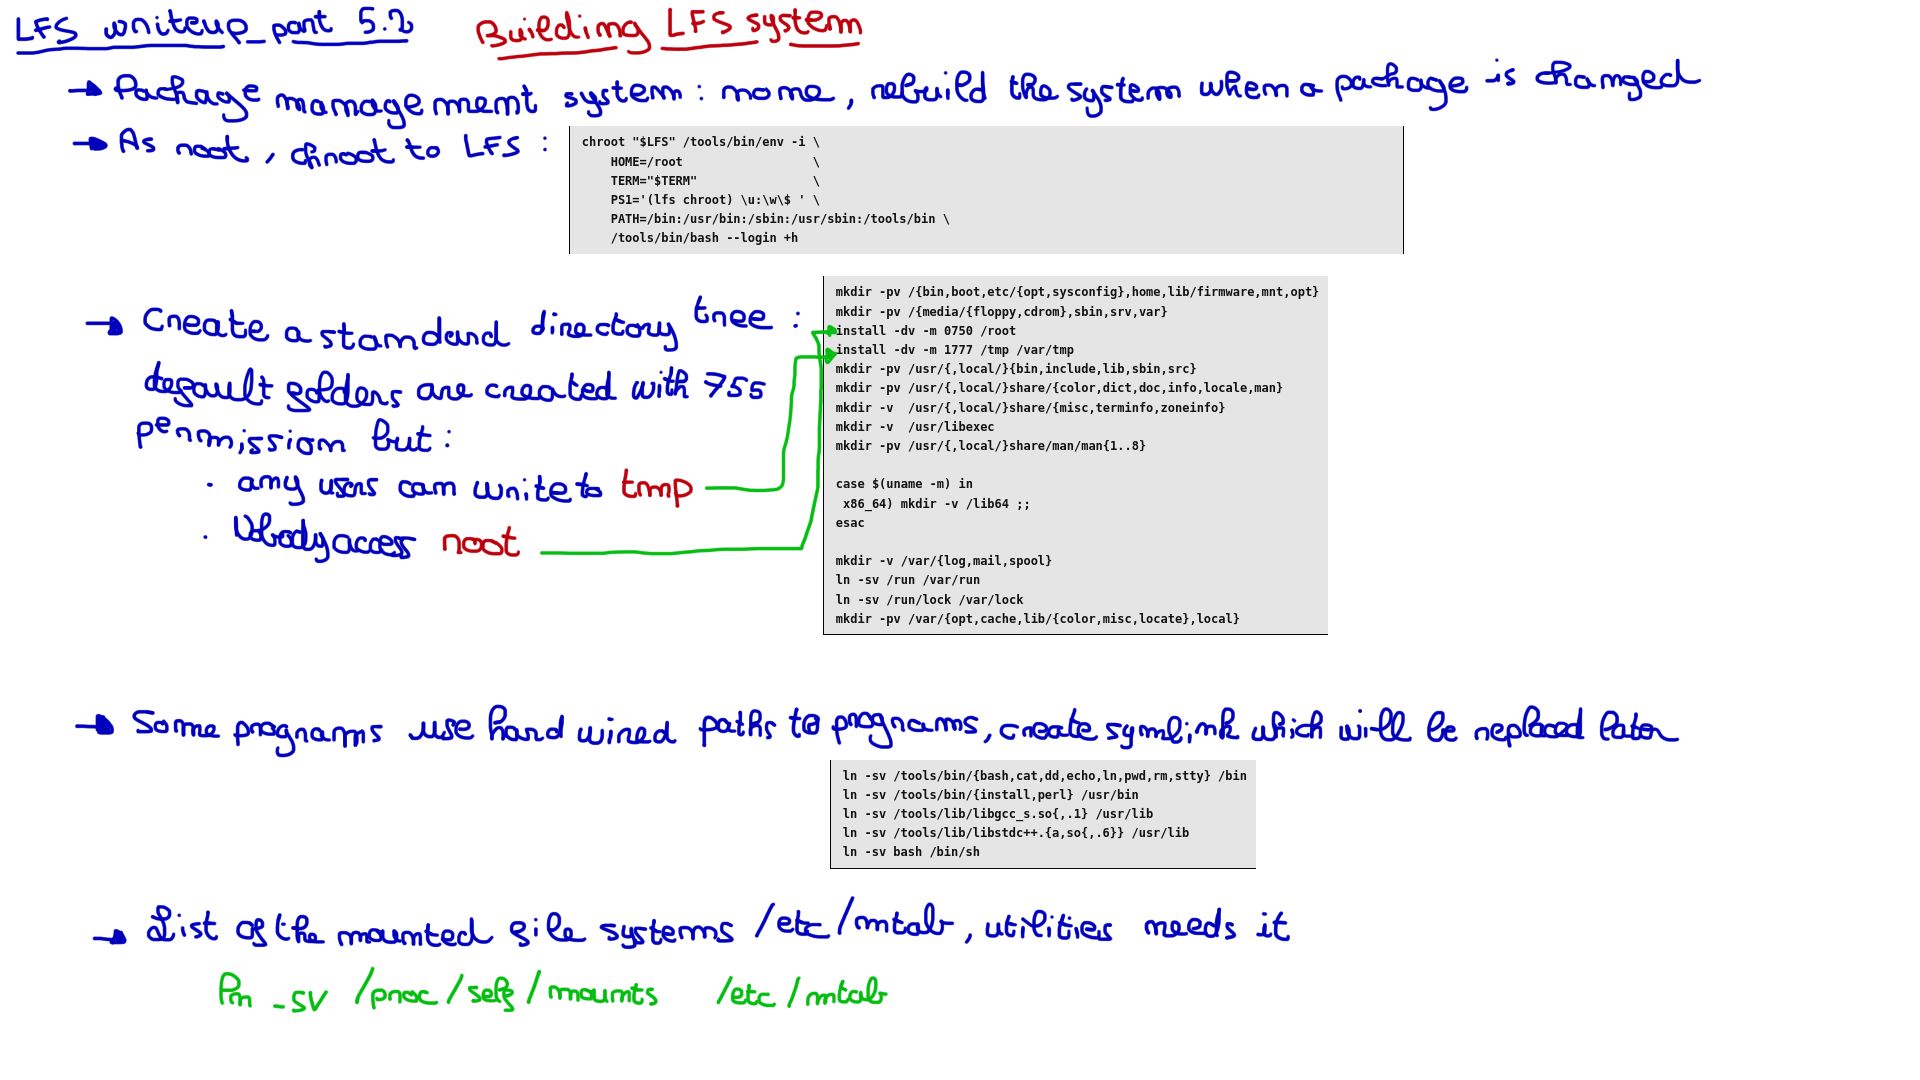 LFS writeup_part 5.2 Building LFS system
→ Package management system : none, rebuild the system when a package is changed
→ As root, chroot to LFS :
chroot "$LFS" /tools/bin/env -i \
    HOME=/root                  \
    TERM="$TERM"                \
    PS1='(lfs chroot) \u:\w\$ ' \
    PATH=/bin:/usr/bin:/sbin:/usr/sbin:/tools/bin \
    /tools/bin/bash --login +h
→ Create a standard directory tree :
default folders are created with 755
permission but :
. any users can write to tmp
. Nobody access root
mkdir -pv /{bin,boot,etc/{opt,sysconfig},home,lib/firmware,mnt,opt}
mkdir -pv /{media/{floppy,cdrom},sbin,srv,var}
install -dv -m 0750 /root
install -dv -m 1777 /tmp /var/tmp
mkdir -pv /usr/{,local/}{bin,include,lib,sbin,src}
mkdir -pv /usr/{,local/}share/{color,dict,doc,info,locale,man}
mkdir -v  /usr/{,local/}share/{misc,terminfo,zoneinfo}
mkdir -v  /usr/libexec
mkdir -pv /usr/{,local/}share/man/man{1..8}
case $(uname -m) in
 x86_64) mkdir -v /lib64 ;;
esac
mkdir -v /var/{log,mail,spool}
ln -sv /run /var/run
ln -sv /run/lock /var/lock
mkdir -pv /var/{opt,cache,lib/{color,misc,locate},local}
→ Some programs use hard wired paths to programs, create symlink which will be replaced later
ln -sv /tools/bin/{bash,cat,dd,echo,ln,pwd,rm,stty} /bin
ln -sv /tools/bin/{install,perl} /usr/bin
ln -sv /tools/lib/libgcc_s.so{,.1} /usr/lib
ln -sv /tools/lib/libstdc++.{a,so{,.6}} /usr/lib
ln -sv bash /bin/sh
→ List of the mounted file systems /etc/mtab, utilities needs it
ln -sv /proc/self/mounts /etc/mtab